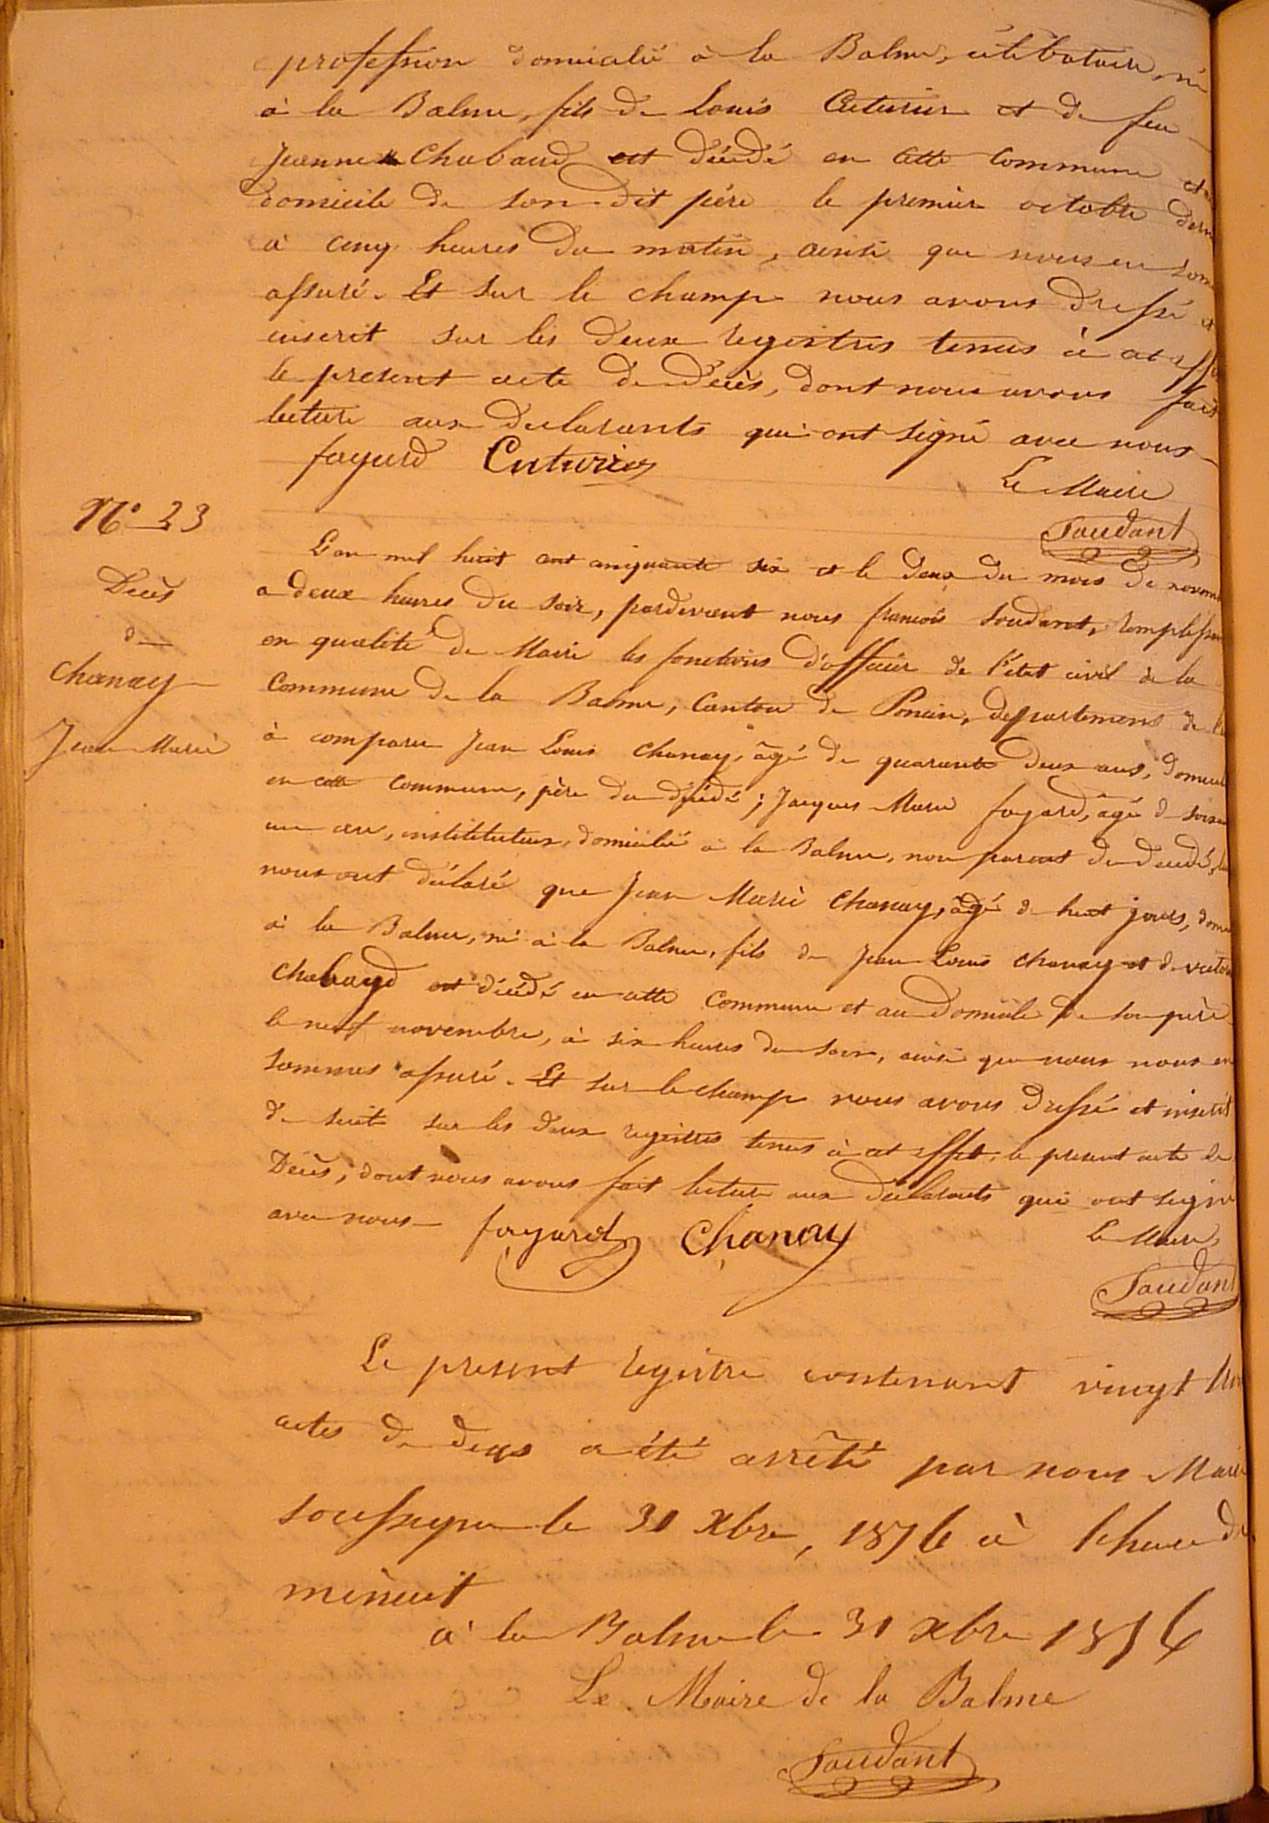 profession domicilié à la Balme, célibataire, né
à la Balme, fils de Louis Cuturier et de feu
Jeanne Chabaud est décédé en cette commune et au
domicile de son dit père le premier octobre dern
à cinq heures du matin, ainsi que nous en som
assuré. Et sur le champ nous avons dressé et
inscrit sur les deux registres tenus à cet effet
le present acte de Décès, dont nous avons fait
lecture aux declarants qui ont signé avec nous
fayard Cuturier
Le Maire
Soudant
N° 23
Décès
de
Chanay
Jean Marie
L'an mil huit cent cinquante six et le deux du mois de novem
a deux heures du soir, pardevant nous françois Soudant, remplissan
en qualité de Maire les fonctions d'officier de l'état civil de la
Commune de la Balme, Canton de Poncin, departement de l'
à comparu Jean Louis Chanay, âgé de quarante deux ans, domicil
en cette commune, père du décédé; Jacques Marie fayard, âgé de soixan
un an, instituteur, domicilié à la Balme, non parent du decédé,
nous ont déclaré que Jean Marie Chanay, âgé de huit jours, dom
à la Balme, né à la Balme, fils de Jean Louis Chanay et de victo
Chabaud est décédé en cette Commune et au Domicile de son père
le neuf novembre, à six heures du soir, ainsi que nous nous en
sommes assuré. Et sur le champ nous avons dressé et inscrit
de suite sur les deux registres tenus à cet effet, le present acte de
Décès, dont nous avons fait lecture aux déclarants qui ont signé
avec nous fayard Chanay
Le Maire
Soudant
Le present registre contenant vingt trois
actes de deces a été arrêté par nous Maire
soussigné le 31 Xbre, 1856 à l'heure de
minuit
à la Balme le 31 Xbre 1856
Le Maire de la Balme
Soudant